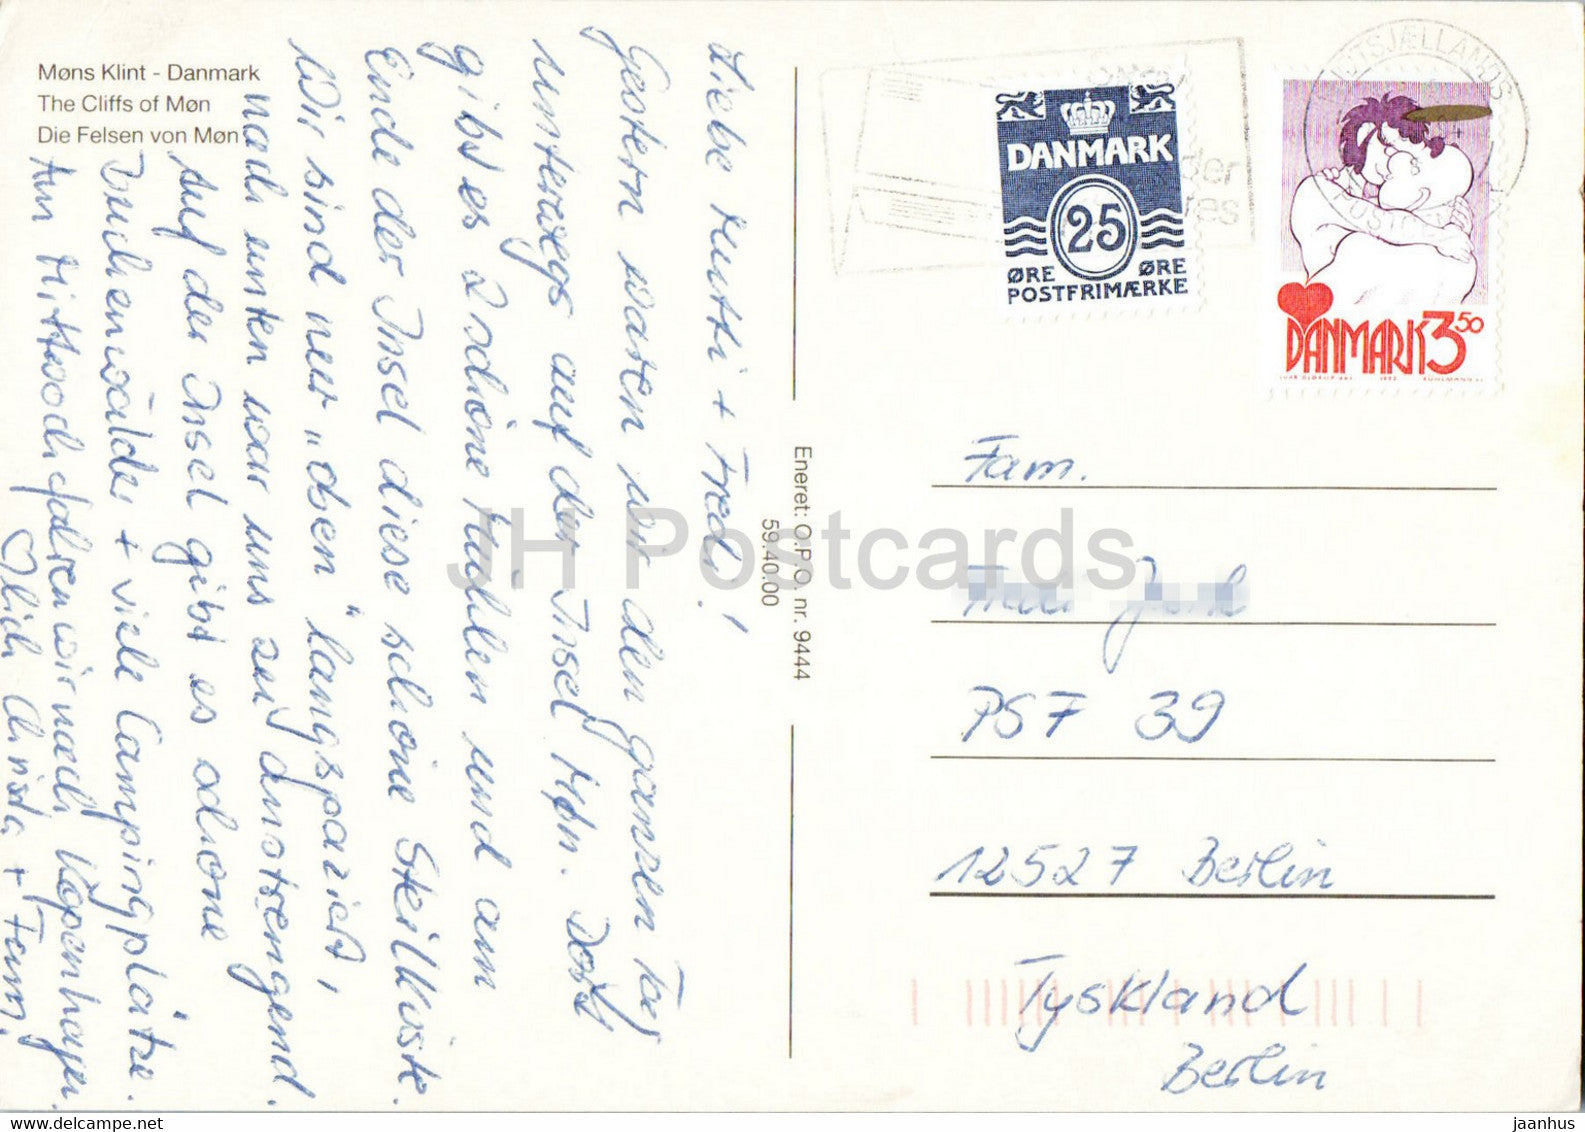 Møns Klint - Danmark
The Cliffs of Møn
Die Felsen von Møn
Liebe Mutti + Fred!
Gestern waren wir den ganzen Tag
unterwegs auf der Insel Møn. Dort
gibt es 2 schöne Mühlen und am
Ende der Insel diese schöne Steilküste.
Wir sind nur "oben" langspaziert,
nach unten war uns zu anstrengend.
Auf der Insel gibt es schöne
Buchenwälder + viele Campingplätze.
Am Mittwoch fahren wir nach Kopenhagen.
Christa + Fam.
Eneret: O.P.O. nr. 9444
59.40.00
DANMARK
25
ØRE ØRE
POSTFRIMÆRKE
DANMARK 3 50
SJÆLLANDS
POST
Fam.
PSF 39
12527 Berlin
Tyskland
Berlin
JH Postcards
www.delcampe.net
jaanhus